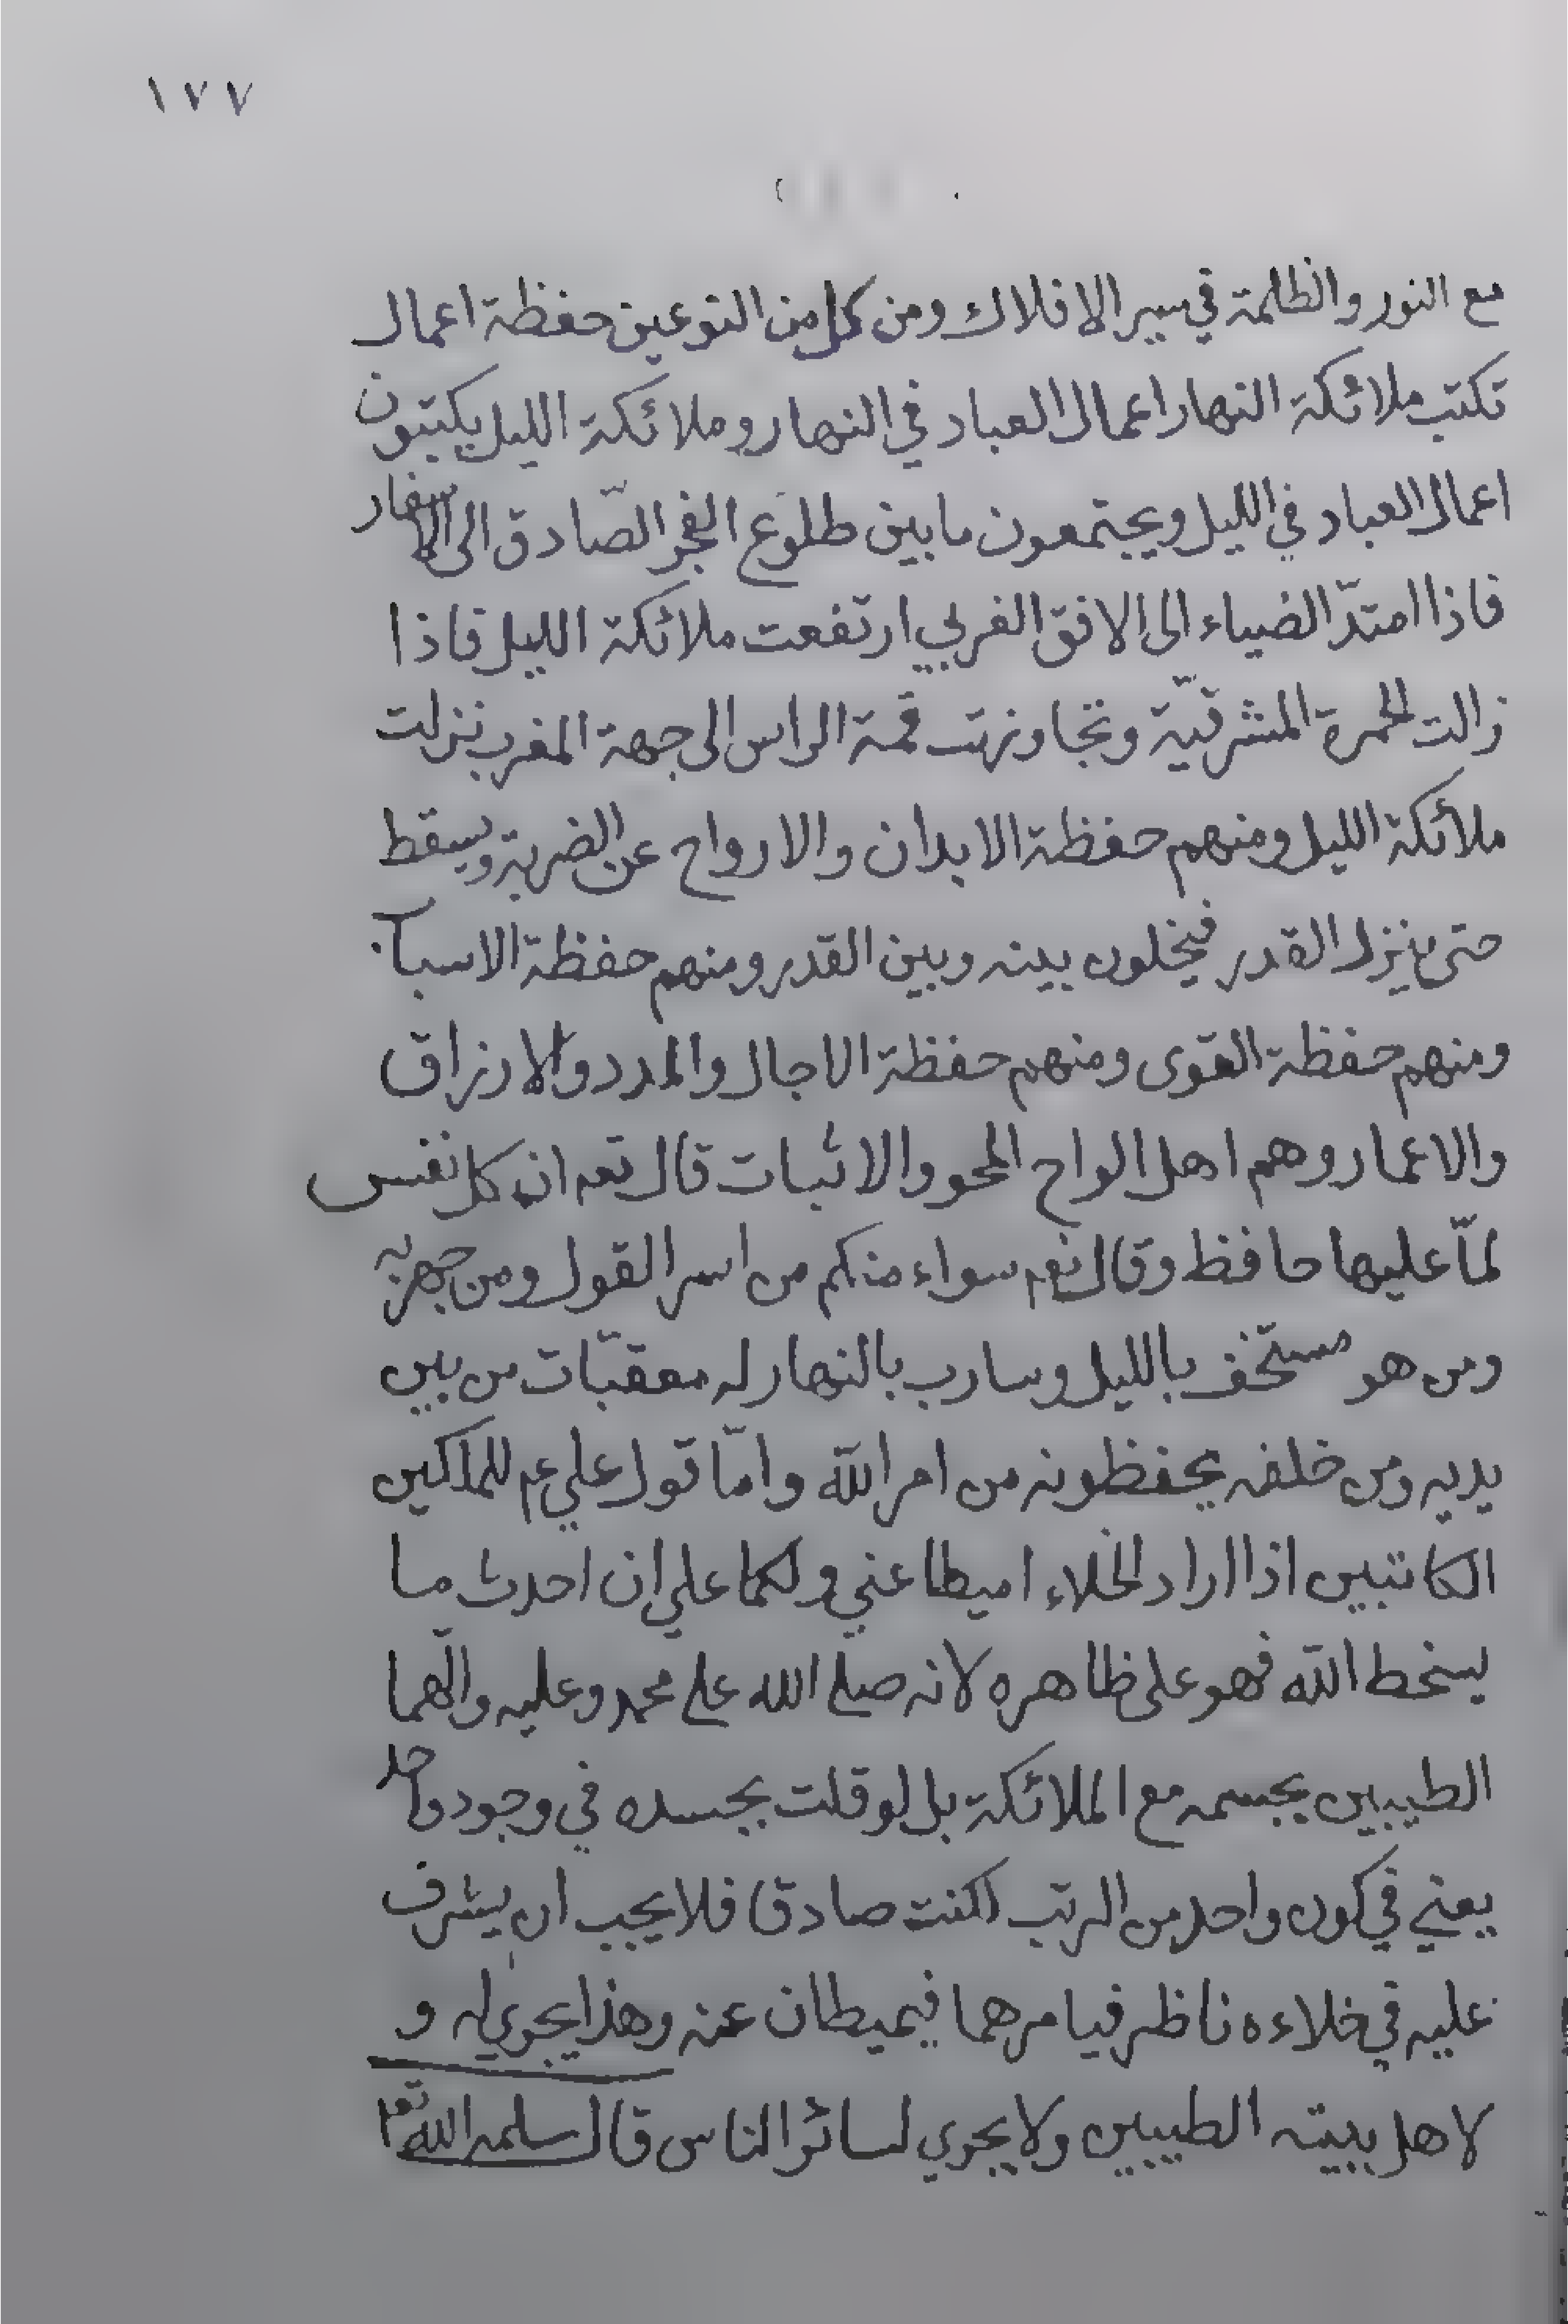 ١٧٧
مع النور والظلمة في سير الافلاك ومن كل من النوعين حفظة اعمال
تكتب ملائكة النهار اعمال العباد في النهار وملائكة الليل يكتبون
اعمال العباد في الليل ويجتمعون ما بين طلوع الفجر الصّادق الى الاسفار
فاذا امتدّ الضياء الى الافق الغربي ارتفعت ملائكة الليل فاذا
زالت الحمرة المشرقيّة وتجاوزت قمة الراس الى جهة المغرب نزلت
ملائكة الليل ومنهم حفظة الابدان والارواح عن الضربة ويسقط
حتى ينزل القدر فيخلون بينه وبين القدر ومنهم حفظة الاسباب
ومنهم حفظة القوى ومنهم حفظة الاجال والمدد والارزاق
والاعمار وهم اهل الواح المحو والاثبات قال تعه ان كل نفس
لمّا عليها حافظ وقال تعه سواء منكم من اسر القول ومن جهر به
ومن هو مستخف بالليل وسارب بالنهار له معقبّات من بين
يديه ومن خلفه يحفظونه من امر الله وامّا قول علي عم للملكين
الكاتبين اذا اراد الخلاء اميطا عني ولكما علي ان احدث ما
يسخط الله فهو على ظاهره لانه صلى الله على محمد وعليه والهما
الطيبين بجسمه مع الملائكة بل لو قلت بجسده في وجود واحد
يعني في كون واحد من الرتب لكنت صادقا فلا يجب ان يشرف
عليه في خلاءه ناظر فيامرهما فيميطان عنه وهذا يجري له و
لاهل بيته الطيبين ولا يجري لسائر الناس قال سلمه الله تعا